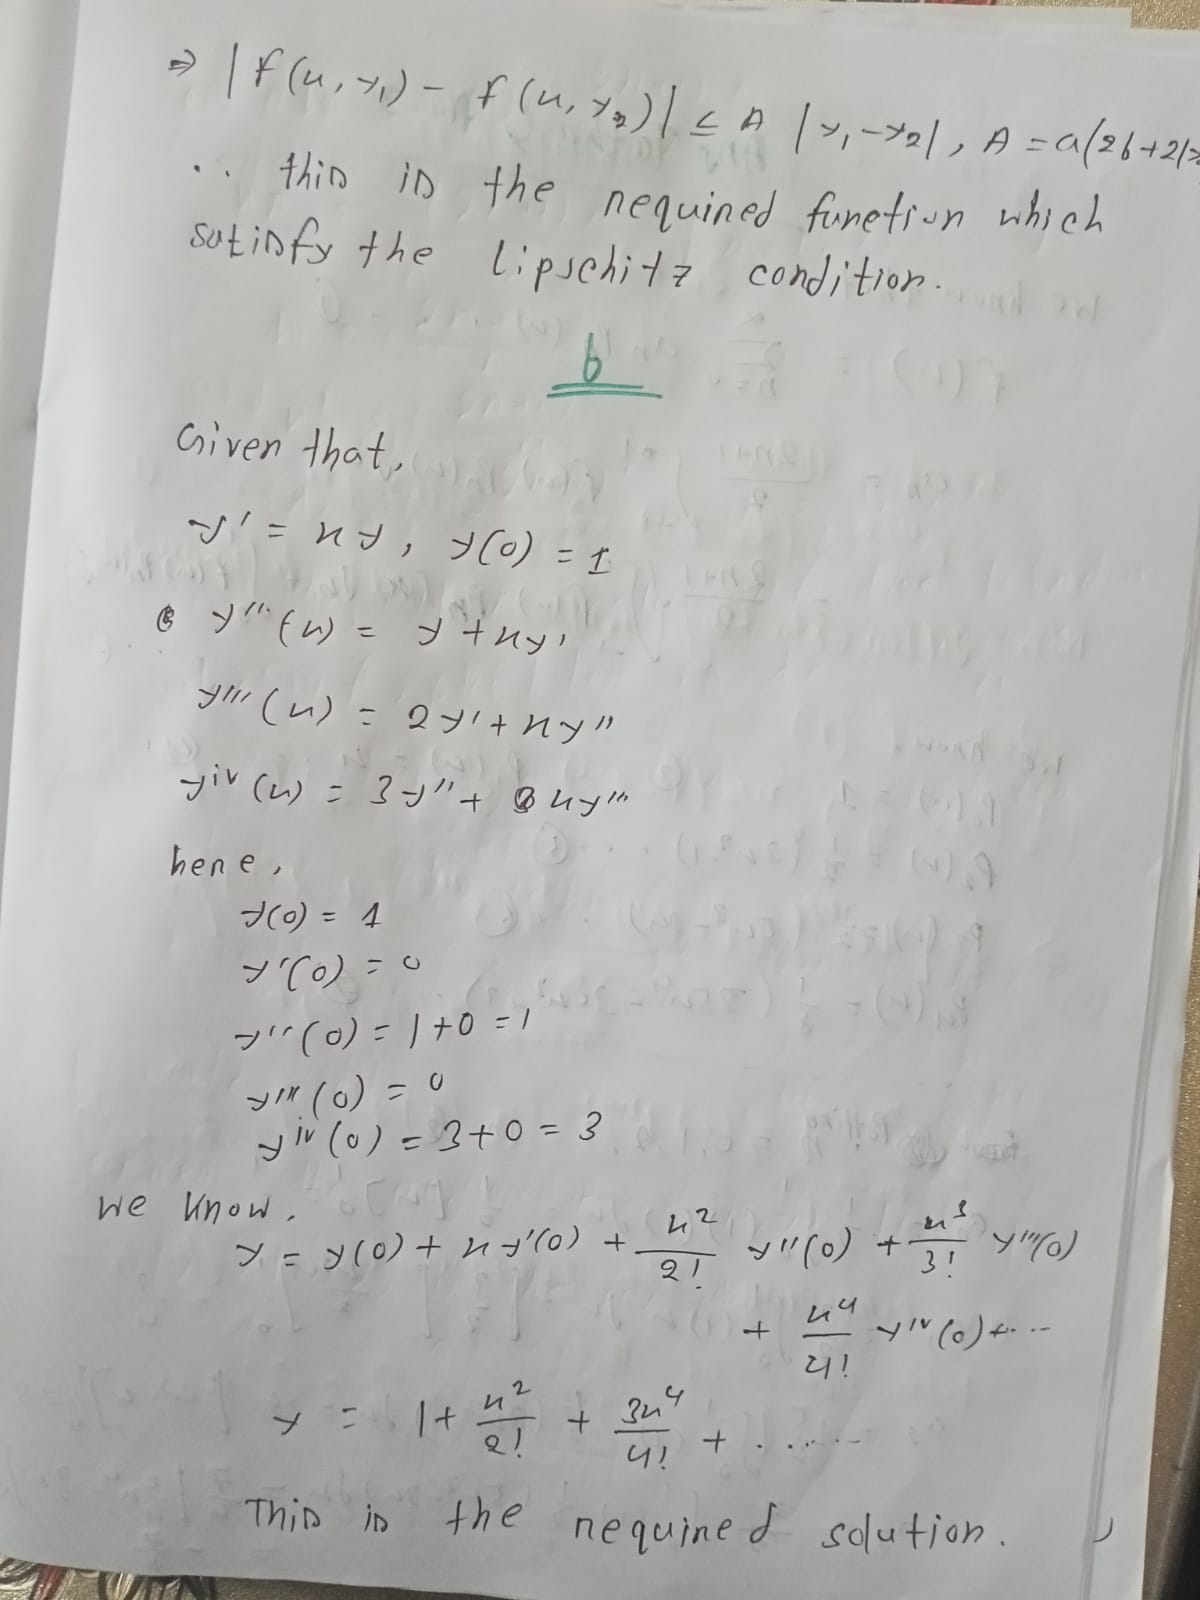 ⇒ |f(x, y₁) - f(x, y₂)| ≤ A |y₁-y₂|, A = a(2b+2|y
∴ this is the required function which
satisfy the Lipschitz condition.
b
Given that,
y' = xy, y(0) = 1
y''(x) = y + xy'
y'''(x) = 2y' + xy''
yⁱᵛ(x) = 3y'' + xy'''
here,
y(0) = 1
y'(0) = 0
y''(0) = 1+0 = 1
y'''(0) = 0
yⁱᵛ(0) = 3+0 = 3
we know,
y = y(0) + xy'(0) + x²/2! y''(0) + x³/3! y'''(0)
+ x⁴/4! yⁱᵛ(0) + ...
y = 1 + x²/2! + 3x⁴/4! + .....
This is the required solution.